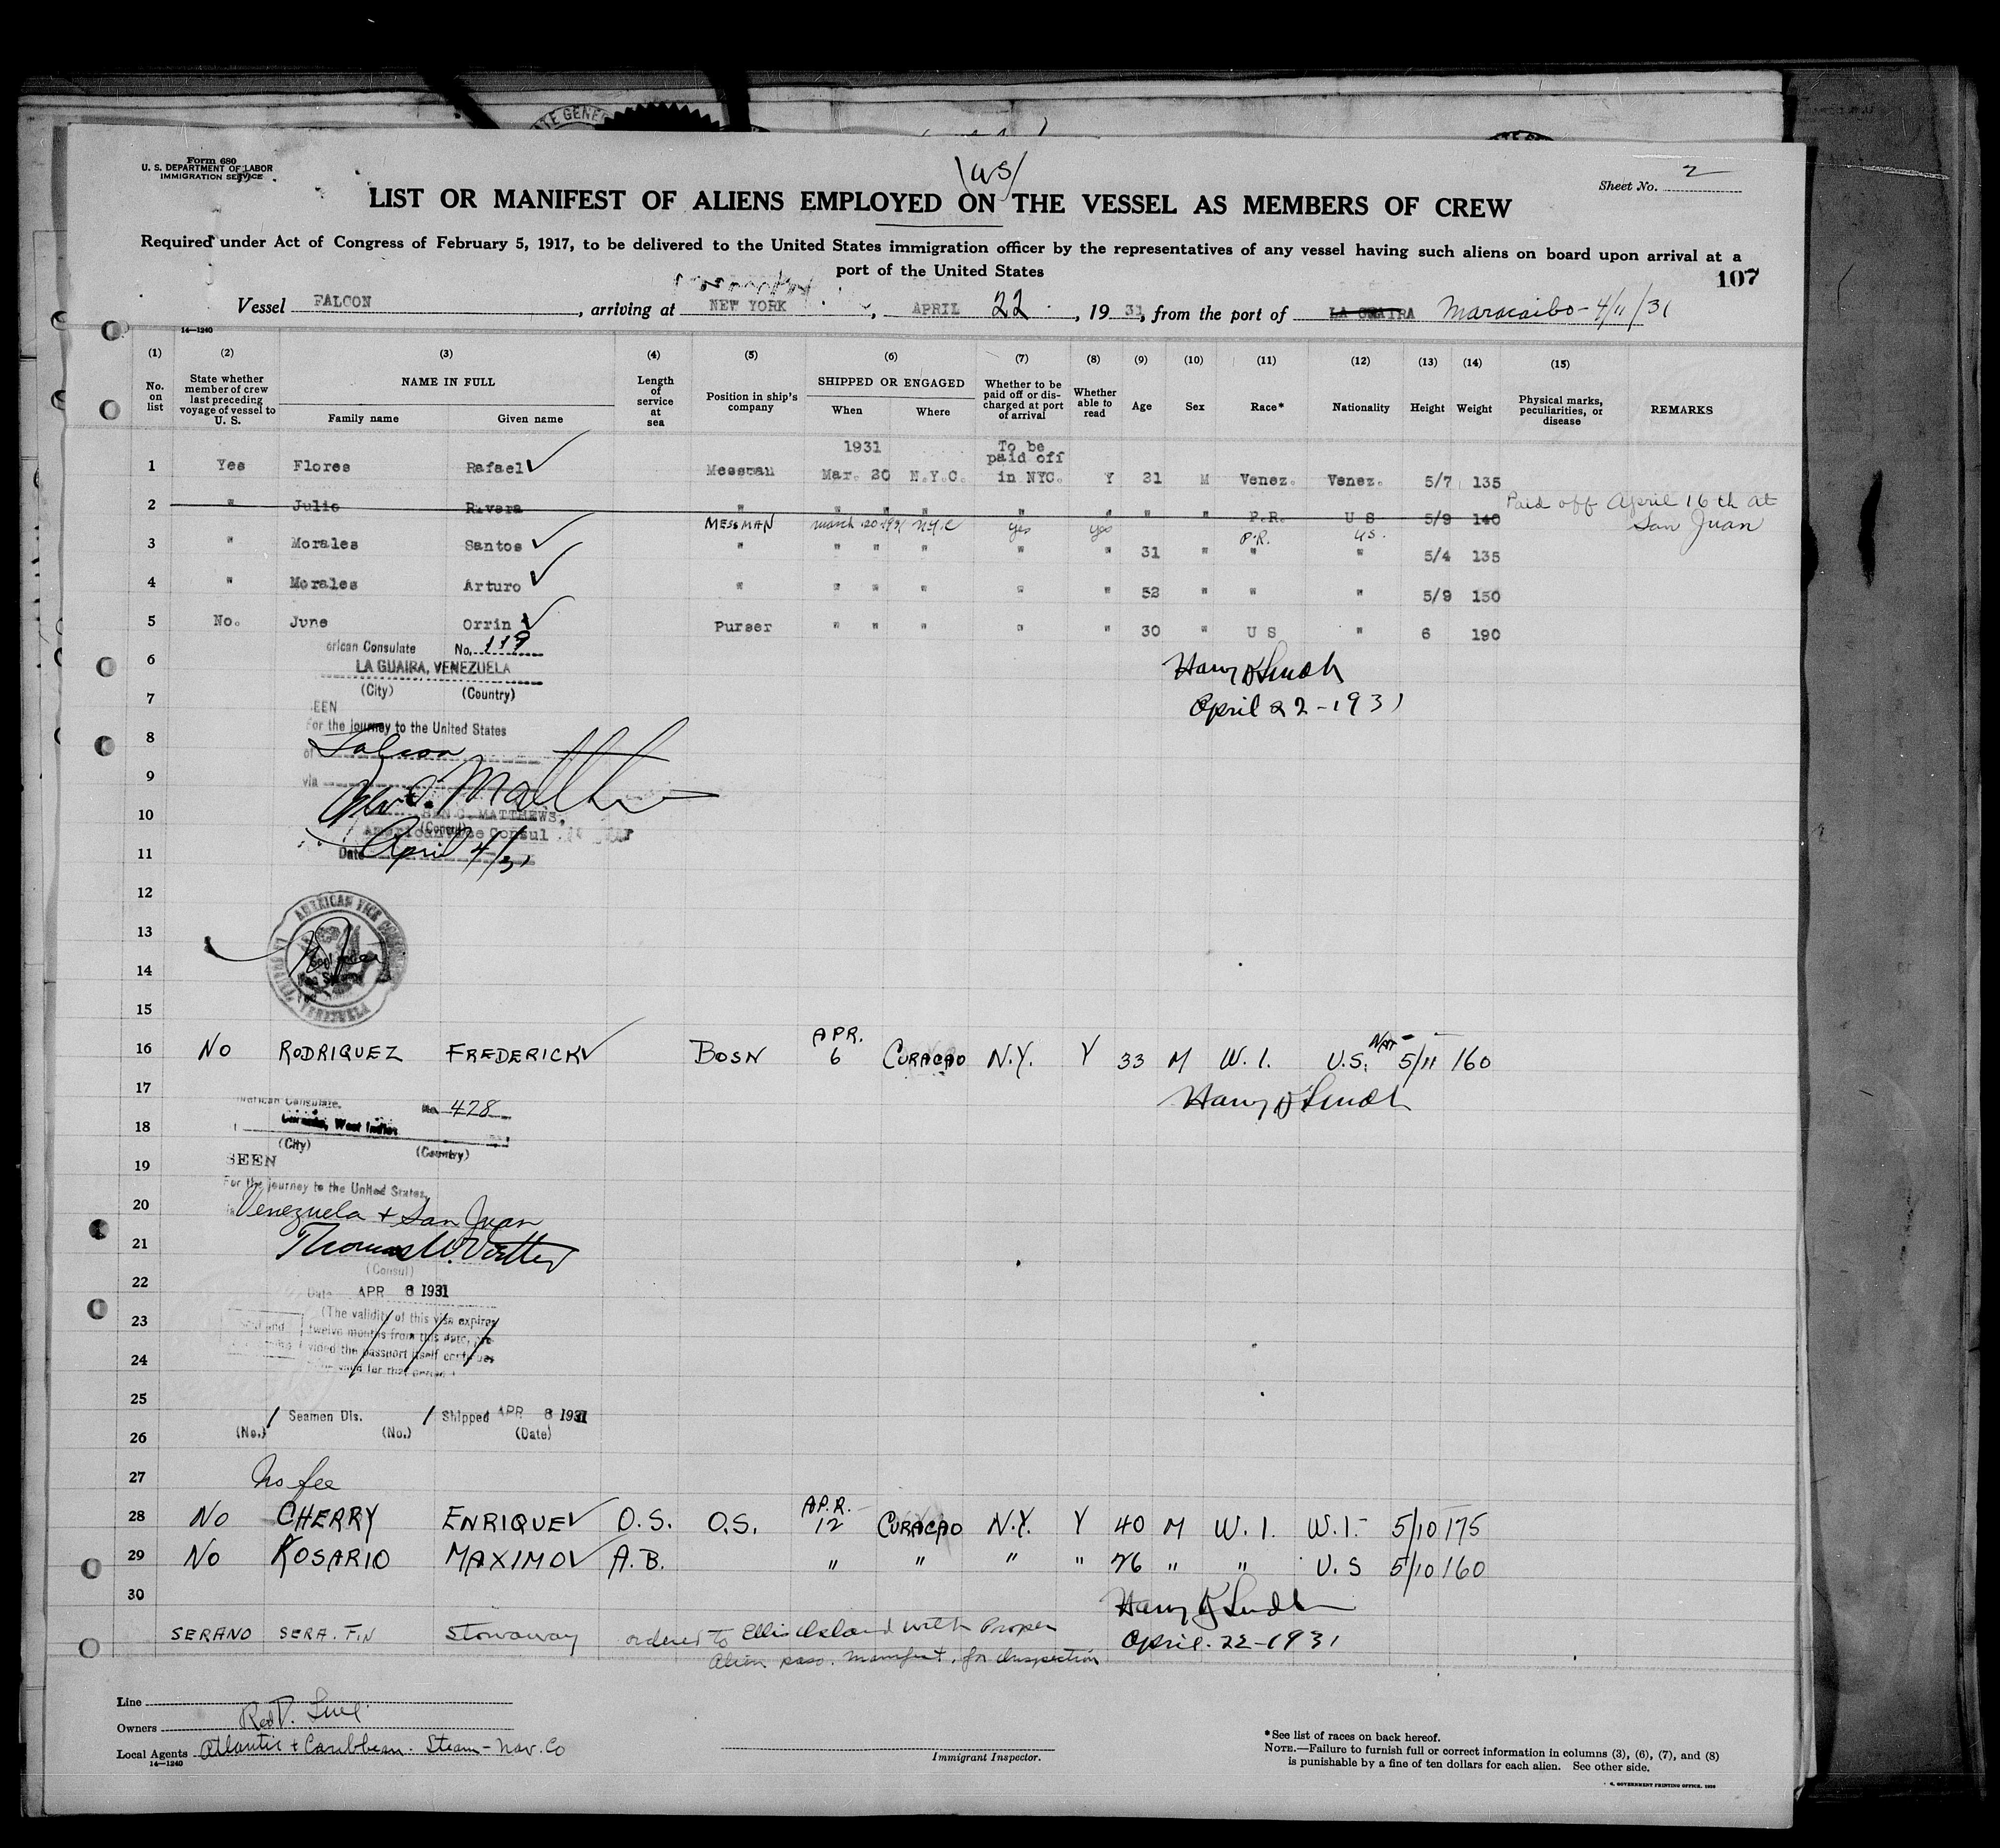 Form 680
U. S. DEPARTMENT OF LABOR
IMMIGRATION SERVICE
Sheet No. 2
LIST OR MANIFEST OF ALIENS EMPLOYED ON THE VESSEL AS MEMBERS OF CREW
Required under Act of Congress of February 5, 1917, to be delivered to the United States immigration officer by the representatives of any vessel having such aliens on board upon arrival at a
port of the United States
107
Vessel FALCON, arriving at NEW YORK, APRIL 22, 19 31, from the port of LA GUAIRA Maracaibo - 4/11/31
14-1240
(1) (2) (3) (4) (5) (6) (7) (8) (9) (10) (11) (12) (13) (14) (15)
No. on list
State whether member of crew last preceding voyage of vessel to U. S.
NAME IN FULL
Family name Given name
Length of service at sea
Position in ship's company
SHIPPED OR ENGAGED
When Where
Whether to be paid off or discharged at port of arrival
Whether able to read
Age Sex Race* Nationality Height Weight
Physical marks, peculiarities, or disease
REMARKS
1931 To be paid off
1 Yes Flores Rafael Messman Mar. 20 N.Y.C. in NYC. Y 21 M Venez. Venez. 5/7 135
2 " Julio Rivera " " " " " " " " P.R. U S 5/9 140 Paid off April 16th at San Juan
MESSMAN march 20 1931 N.Y.C yes yes P.R. U.S.
3 " Morales Santos " " " " " " 31 " " " 5/4 135
4 " Morales Arturo " " " " " " 52 " " " 5/9 150
5 No. June Orrin Purser " " " " " 30 " U S " 6 190
6
erican Consulate No. 119
LA GUAIRA, VENEZUELA
(City) (Country)
7
SEEN
For the journey to the United States
8
Falcon
9
via
10
BEN C. MATTHEWS,
American Vice Consul
(Consul)
11
Date April 4/31
April 22-1931
12
AMERICAN VICE CONSUL
LA GUAIRA
VENEZUELA
13
14
15
16 NO RODRIQUEZ FREDERICK BOSN APR. 6 CURACAO N.Y. Y 33 M W. I. U.S. NAT 5/11 160
17
American Consulate No. 428
18
Curacao, West Indies
(City) (Country)
19
SEEN
For the journey to the United States
20
Venezuela + San Juan
21
(Consul)
22
Date APR 8 1931
23
(The validity of this visa expires
twelve months from this date, pro-
24
vided the passport itself continues
25
/ Seamen Dis. / Shipped APR 8 1931
(No.) (No.) (Date)
26
27 No fee
28 NO CHERRY ENRIQUE O.S. O.S. APR. 12 CURACAO N.Y. Y 40 M W. I. W.I. 5/10 175
29 NO ROSARIO MAXIMO A.B. " " " " 26 " " U.S 5/10 160
30
SERANO SERA.FIN Stowaway ordered to Ellis Island with Proper
Alien pass. manifest, for Inspection
April. 22-1931
Line
Owners Red D. Line
Local Agents Atlantic + Caribbean. Steam-Nav. Co
14-1240
Immigrant Inspector.
*See list of races on back hereof.
NOTE.—Failure to furnish full or correct information in columns (3), (6), (7), and (8)
is punishable by a fine of ten dollars for each alien. See other side.